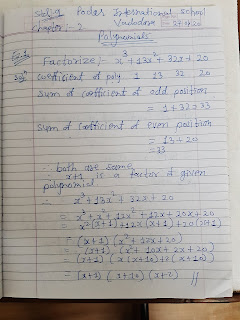 Podar International school
Chapter :- 2 Vadodara
Polynomials
Ex.1 Factorize :- x³+13x²+32x+20
Solⁿ Coefficient of poly 1 13 32 20
Sum of coefficient of odd position
= 1+32=33
Sum of Coefficient of even position
= 13+20
=33
∴ both are same
∴ x+1 is a factor of given
polynomial.
∴ x³+13x²+32x+20
= x³+x²+12x²+12x+20x+20
= x²(x+1)+12x(x+1)+20(x+1)
= (x+1) (x²+12x+20)
= (x+1) (x²+10x+2x+20)
= (x+1) x(x+10)+2(x+10)
= (x+1) (x+10) (x+2) //